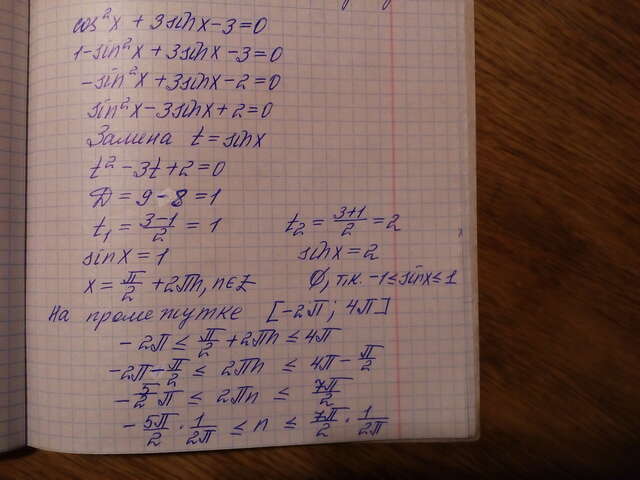 cos²x + 3sinx - 3 = 0
1 - sin²x + 3sinx - 3 = 0
- sin²x + 3sinx - 2 = 0
sin²x - 3sinx + 2 = 0
Замена t = sinx
t² - 3t + 2 = 0
D = 9 - 8 = 1
t₁ = (3-1)/2 = 1 t₂ = (3+1)/2 = 2
sinx = 1 sinx = 2
x = π/2 + 2πn, n∈Z ∅, т.к. -1 ≤ sinx ≤ 1
На промежутке [-2π; 4π]
-2π ≤ π/2 + 2πn ≤ 4π
-2π - π/2 ≤ 2πn ≤ 4π - π/2
-5/2 π ≤ 2πn ≤ 7π/2
-5π/2 · 1/2π ≤ n ≤ 7π/2 · 1/2π